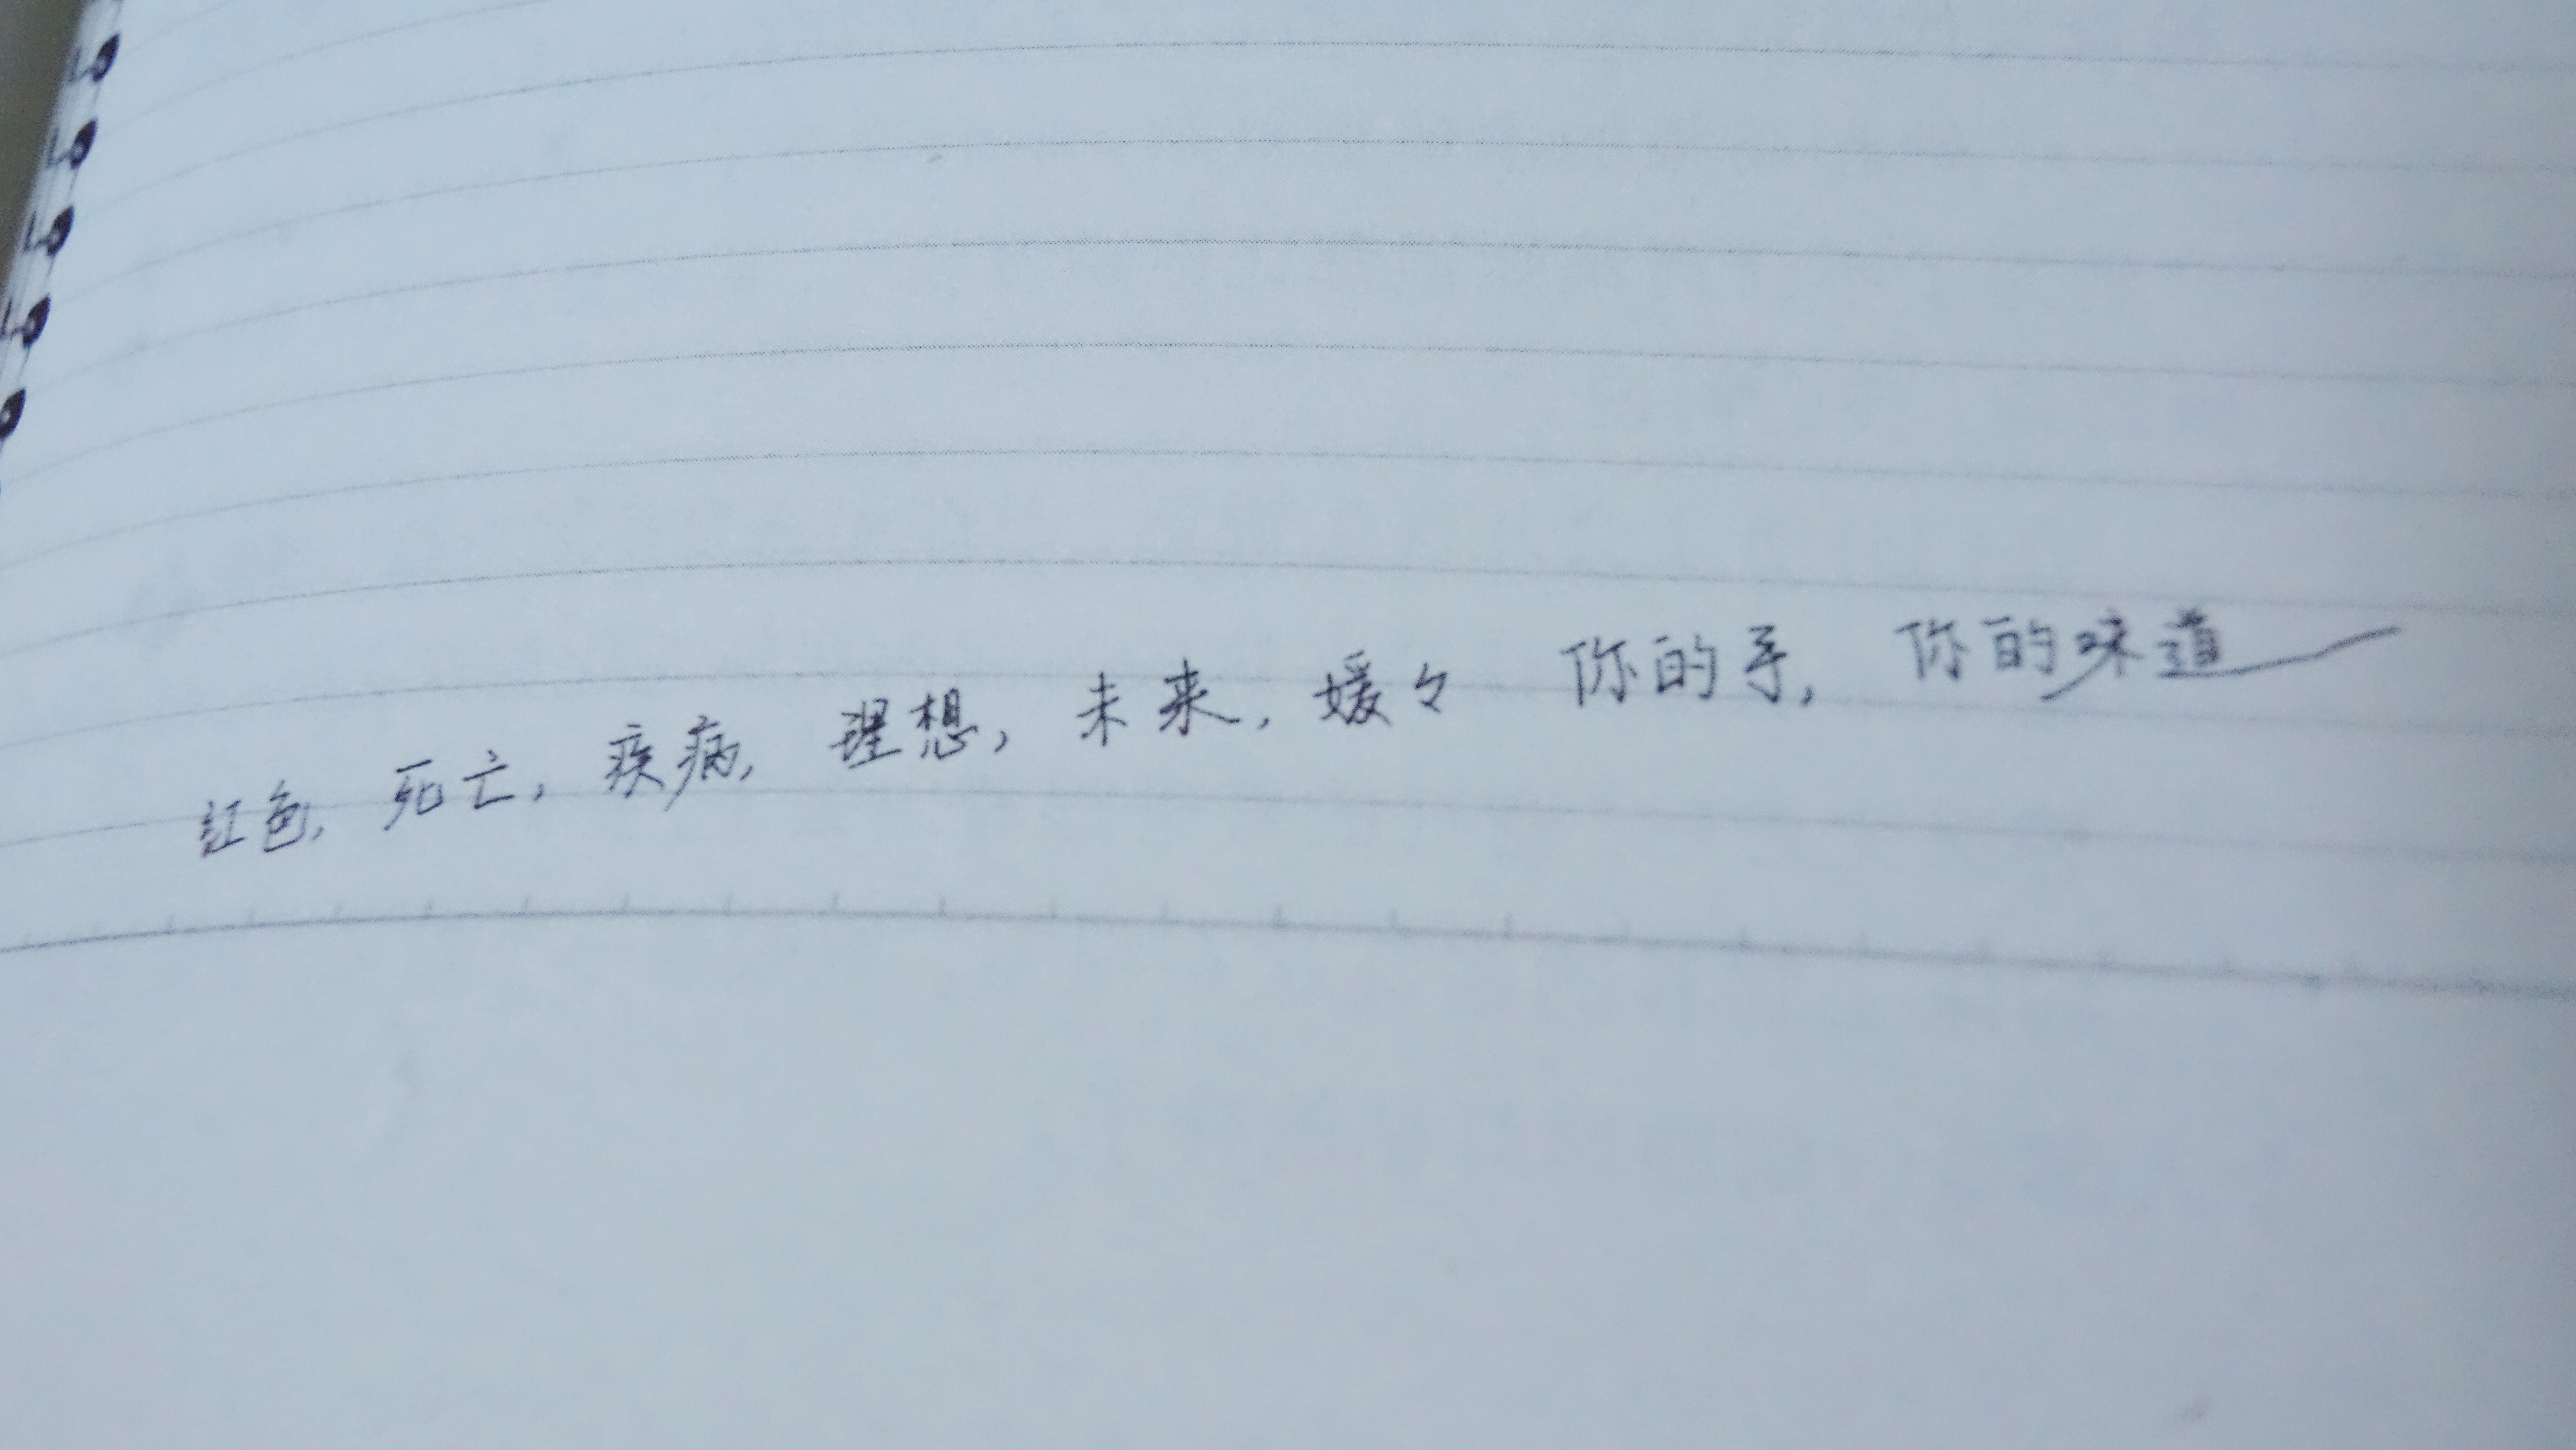 红色，死亡，疾病，理想，未来，媛々 你的手，你的味道